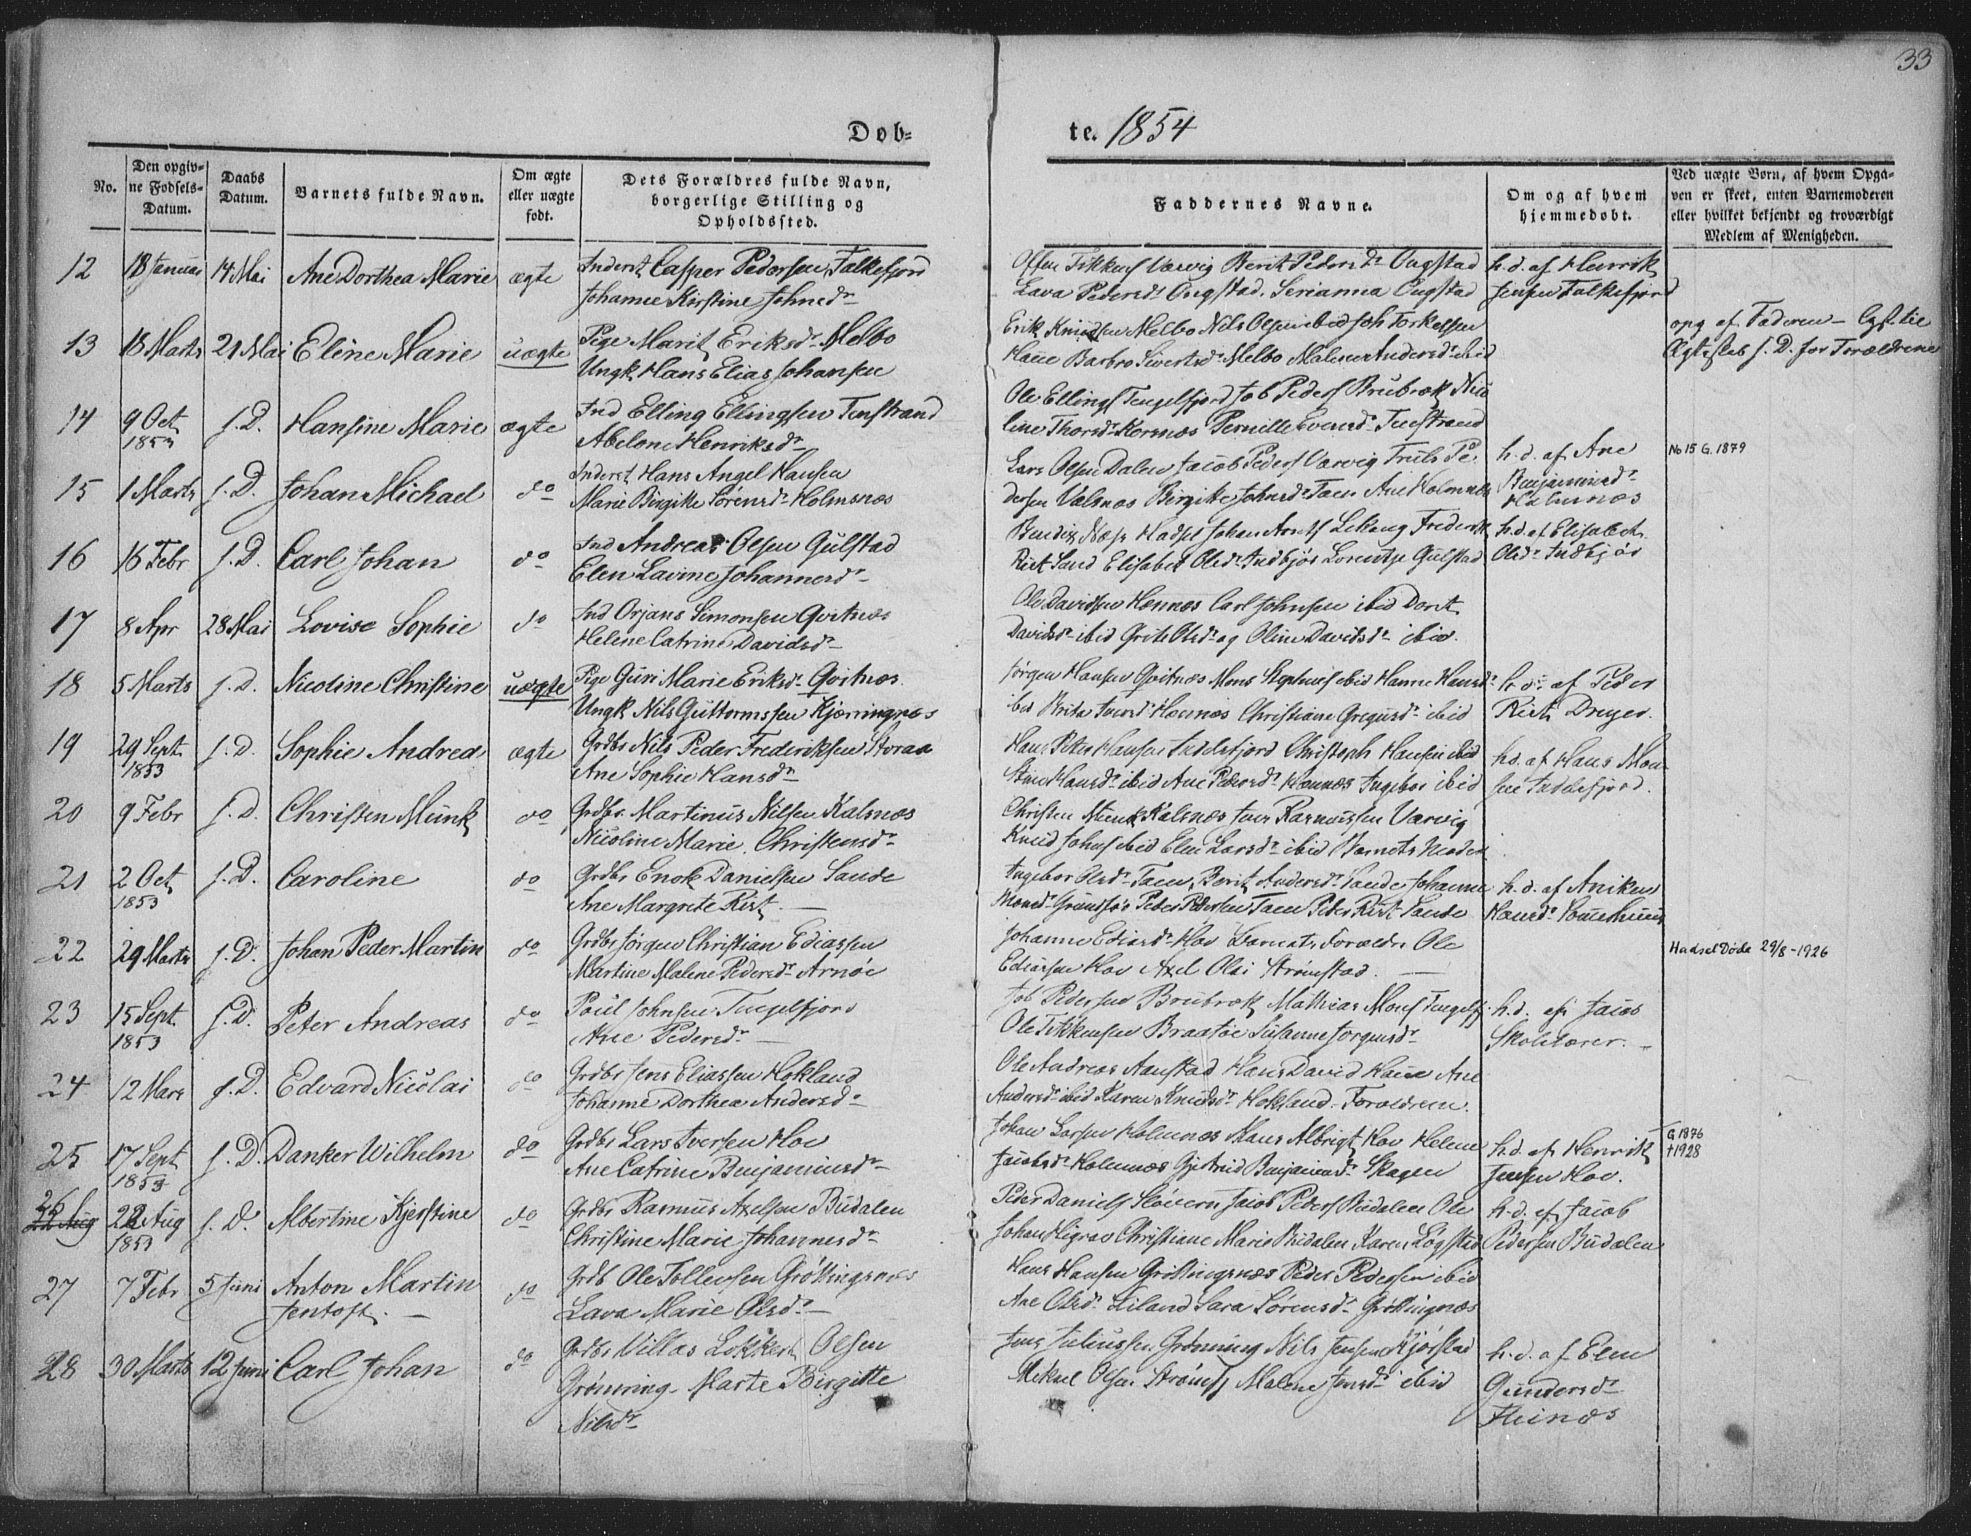 33
Døb-
te. 1854
No.
Den opgiv-
ne Fødsels-
Datum.
Daabs
Datum.
Barnets fulde Navn.
Om ægte
eller uægte
født.
Dets Forældres fulde Navn,
borgerlige Stilling og
Opholdssted.
Faddernes Navne.
Om og af hvem
hjemmedøbt.
Ved uægte Børn, af hvem Opga-
ven er skeet, enten Barnemoderen
eller hvilket bekjendt og troværdigt
Medlem af Menigheden.
12 18 Januar 14 Mai Ane Dorthea Marie ægte Inderst Casper Pedersen, Falkefjord
Johanne Kirstine Johnsdr
Berit Pedersdr Ongstad
Lava Pedersdr Ongstad. Serianna Ongstad
h.d. af Henrik
Jensen Falkefjord
13 18 Marts 21 Mai Eline Marie uægte Pige Marit Eriksdr Melbo
Ungk Hans Elias Johansen
Erik Knudsen Melbo Nils Olsen ibid Joh Torkelsen
Haue Barbro Sivertsdr Melbo Malene Andersdr ibid
opg af Faderen
for Forældrene
14 9 Oct 1853 s.D. Hansine Marie ægte Ind Elling Ellingsen Tenstrand
Abelone Henriksdr
Ole Ellings Tengelfjord Job Peders Brubræk Nico
line Thorsdr Kornæs Pernille Evensdr Tenstrand
15 1 Marts s.D. Johan Michael do Inderst Hans Angel Hansen
Marie Birgitte Sørensdr Holmsnæs
Lars Olsen Dalen Jacob Peders Varvig Truls Pe-
dersen Valsnæs Birgitte Johnsdr Taen Ane Holmnæs
h.d. af Ane
Benjaminsdr
Holmnæs
No 15 G. 1879
16 16 Febr s.D. Carl Johan do Ind Andreas Olsen Gulstad
Elen Lavine Johannesdr
Hadsel Johan Lekang Frederik
Rist Sand Elisabet Olsdr Indbjør Lorentze Gulstad
h.d. af Elisabeth
Olsdr Indbjør
17 8 Apr 28 Mai Lovise Sophie do Ind Orjans Simonsen Qvitnæs
Helene Catrine Davidsdr
Ole Davidsen Hennæs Carl Johnsen ibid Dorit
Davidsdr ibid Grete Olsdr og Oline Davidsdr ibid.
18 5 Marts s.D. Nicoline Christine uægte Pige Guri Marie Eriksdr Qvitnæs.
Ungk Nils Guttormssen Kjærringnæs
Jørgen Hansen Qvitnæs Mons Stephens ibid Hanne Hansdr
ibid Brita Iversdr Hennæs Christiane Gregusdr ibid
h.d. af Peder
Rist Dreyer.
19 29 Sept. 1853 s.D. Sophie Andrea ægte Grdbr Nils Peder Frederiksen Storaa
Ane Sophie Hansdr
Hans Peter Hansen Indlefjord Christoph Hansen ibid
Stine Hansdr ibid Ane Pedersdr Hennæs Ingebor ibid
h.d. af Hans Mon
sen Indlefjord.
20 9 Febr s.D. Christen Munk do Grdbr Martinus Nilsen Kalsnæs
Nicoline Marie Christensdr
Christen Munk Kalsnæs Iver Rasmussen Varvig
Knud Johns ibid Elen Larsdr ibid Barnets Moder
21 2 Oct 1853 s.D. Caroline do Grdbr Enok Danielsen Sande
Ane Margrete Rist.
Ingebor Olsdr Taen, Berit Andersdr Sande Johanne
Monsdr Grundfør Peder Pedersen Taen Peter Rist Sande
h.d. af Aniken
Hansdr
22 29 Marts s.D. Johan Peder Martin do Grdbr Jørgen Christian Ediassen
Martine Malene Pedersdr Arnøe
Johanne Ediasdr Hov Barnets Forældre Ole
Ediassen Hov Axel Olai Strømstad.
Hadsel Døde 29/8-1926
23 15 Sept. 1853 s.D. Peter Andreas do Poul Johnsen Tengelfjord
Ane Pedersdr
Job Pedersen Brubræk Mathias Mons Tengelfj.
Ole Tikkensen Braatøe Susanne Jørgensdr
h.d. af Jacob
Skolelærer.
24 12 Mars s.D. Edvard Nicolai do Grdbr Jens Eliassen Hokland
Johanne Dorthea Andersdr
Ole Andreas Aanstad Hans David Haue Ane
Andersdr ibid Karen Knudsdr Hokland. Forældrene.
25 17 Sept 1853 s.D. Danker Wilhelm do Grdbr Lars Iversen Hov
Ane Catrine Benjaminsdr
Johan Larsen Holmnæs Hans Albrigt Hov Helene
Jacobsdr Holmnæs Gjertrud Benjaminsdr Skagen
h.d. af Henrik
Jensen Hov.
G 1876
†1928
26 22 Aug 1853 s.D. Albertine Kjerstine do Grdbr Rasmus Axelsen Budalen
Christine Marie Johannesdr
Peder Daniels Jacob Peders Budalen Ole
Johan Higrav Christiane Marie Budalen Karen Løgstad
h.d. af Jacob
Pedersen Budalen
27 7 Febr 5 Juni Anton Martin
Jentoft. do Grdb Ole Tollevsen Grøttingsnæs
Lava Marie Olsdr
Hans Hansen Grøttingsnæs Peder Pedersen ibid
Ane Olsdr Eiland Sara Sørensdr Grøttingnæs
28 30 Marts 12 Juni Carl Johan do Grdbr Villas Lokkert Olsen
Grønning. Marte Birgitte
Nilsdr
Jens Juliussen Grønning Nils Jensen Kjørstad
Mekael Olsen Malene Jensdr ibid
h.d. af Elen
Gundersdr
Steinæs